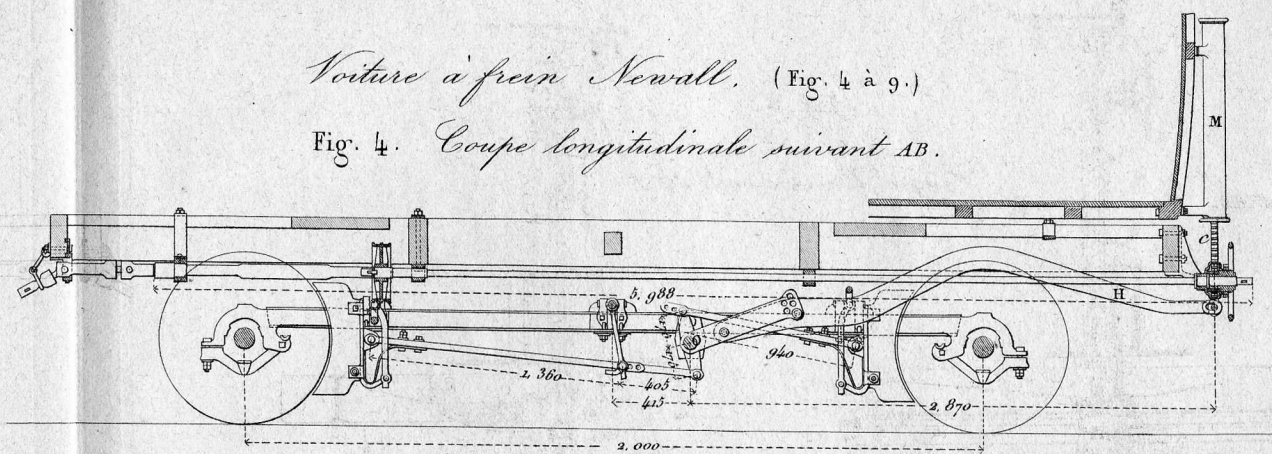 Voiture à frein Newall. (Fig. 4 à 9.)
Fig. 4. Coupe longitudinale suivant AB.
M
c
5,988
H
940
1,360
405
415
2,870
2,000